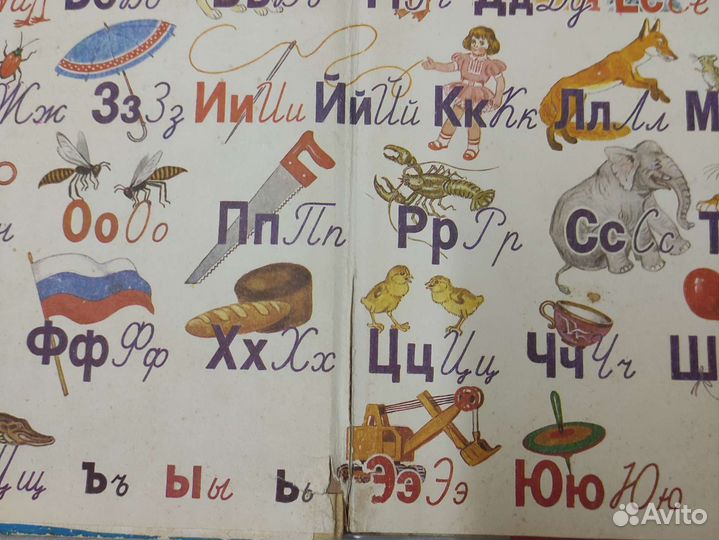 Жж Зз Зз Ии Ии Йй Йй Кк Кк Лл Лл М
Оо Оо Пп Пп Рр Рр Сс Сс Т
Фф Фф Хх Хх Цц Цц Чч Чч Ш
Щщ Ъъ Ыы Ьь Ээ Ээ Юю Юю
Avito